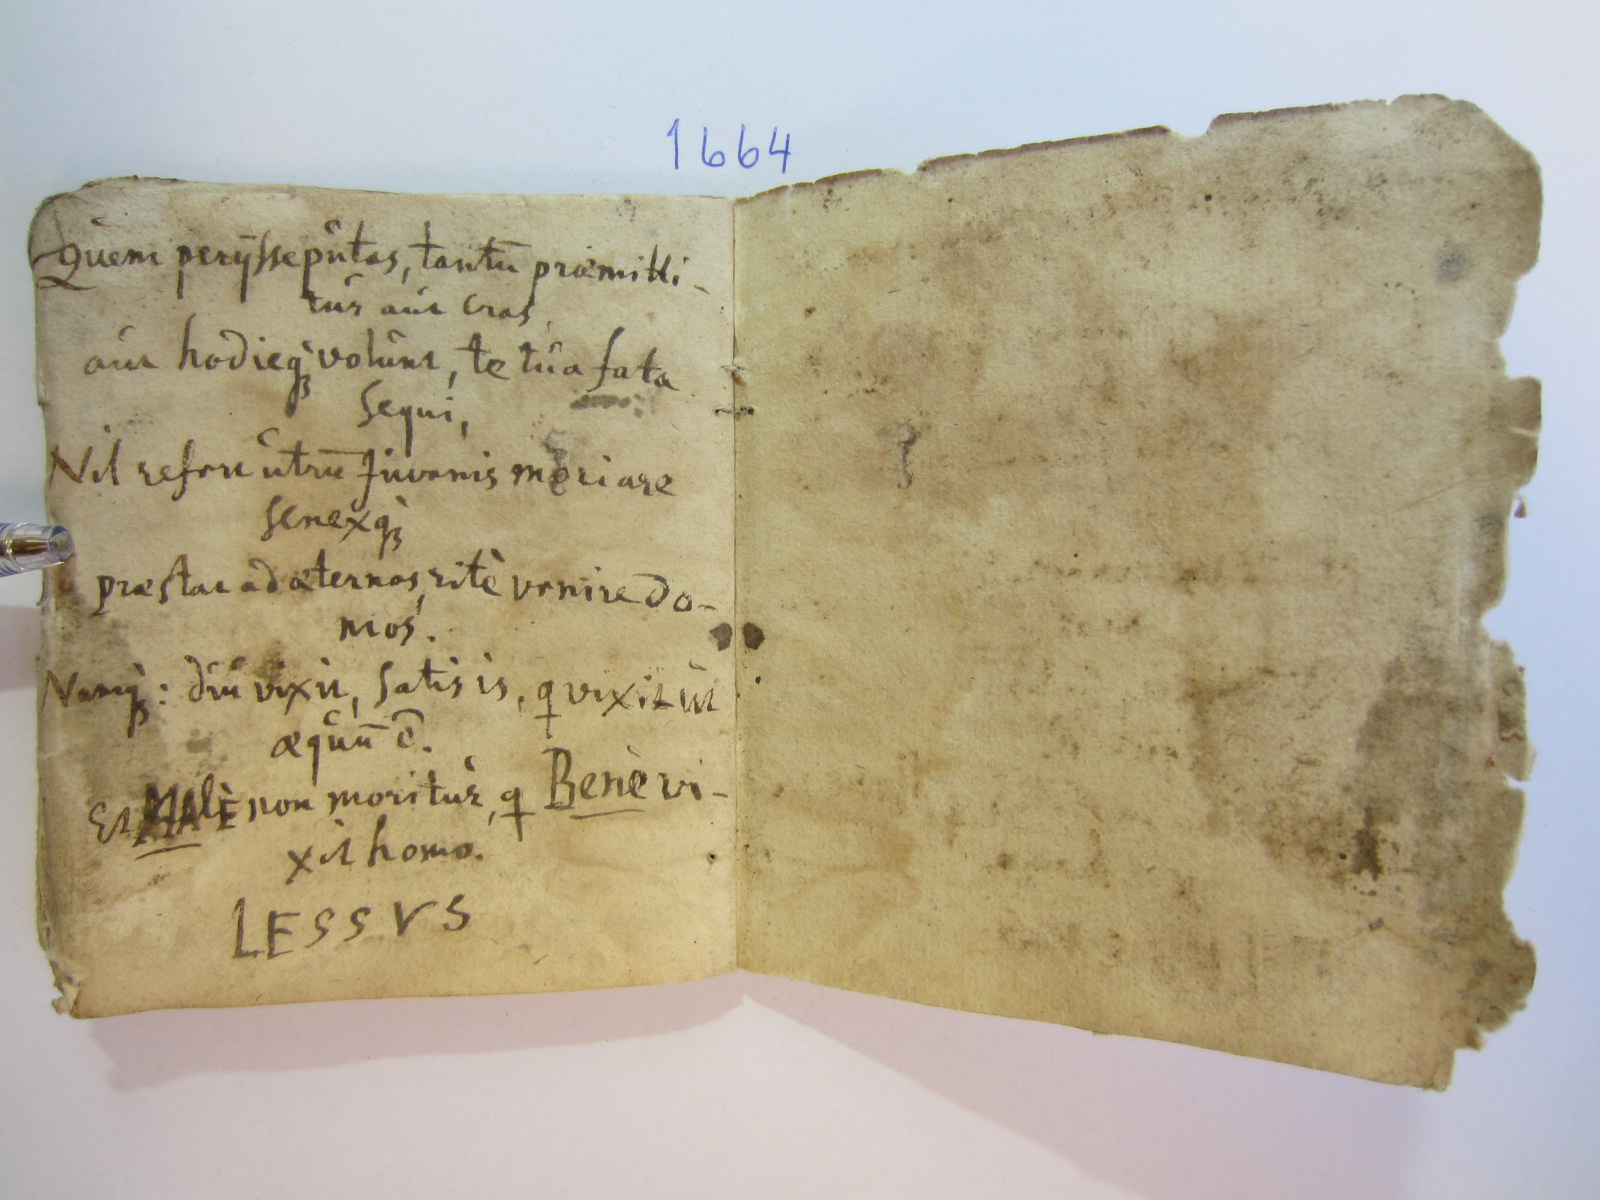 1664
Quem perijsse pùtas, tantū præmitti-
tùr aùt cras,
aùt hodieq́ꝫ volùnt, te tùa fata
sequi,
Nil refert ùtrū Juvenis moriare
senexq́ꝫ
præstat ad æternos, ritè venire do-
mos.
Namq́ꝫ: diù vixit, satis is, q vixit ùt
æqùū ē.
Et MAlÈ non moritùr, q Benè vi-
xit homo.
LESSVS